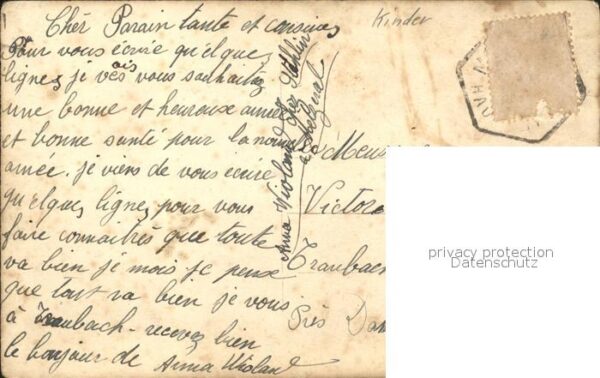 Chér Parain tante et cousines
Pour vous écrire quélques
lignes je vais vous souhaiter
une bonne et heureux année
et bonne santé pour la nouvel
année. je viens de vous écrire
quélques lignes pour vous
faire connaitrés que toute
va bien je mois je peux
que tout va bien je vous
à Traubach - recevez bien
le bonjour de Anna Violand
Anna Violand
Kinder
Victor
Traubach
Près Dan
privacy protection
Datenschutz